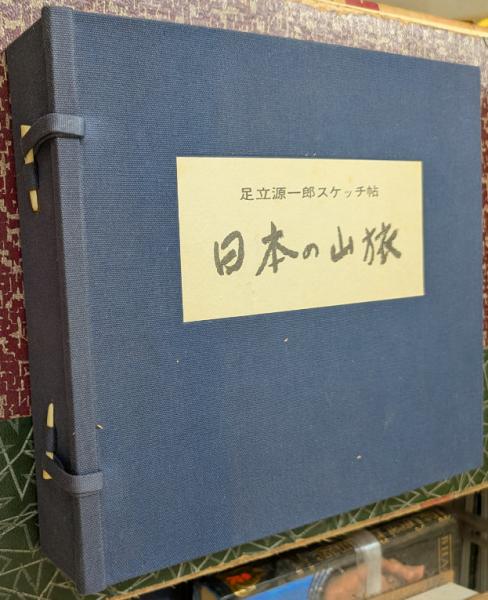 足立源一郎スケッチ帖
日本の山旅